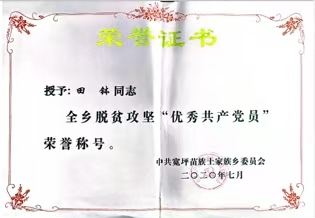 荣誉证书
授予：田 钵 同志
全乡脱贫攻坚“优秀共产党员”
荣誉称号。
中共宽坪苗族土家族乡委员会
二〇二〇年七月